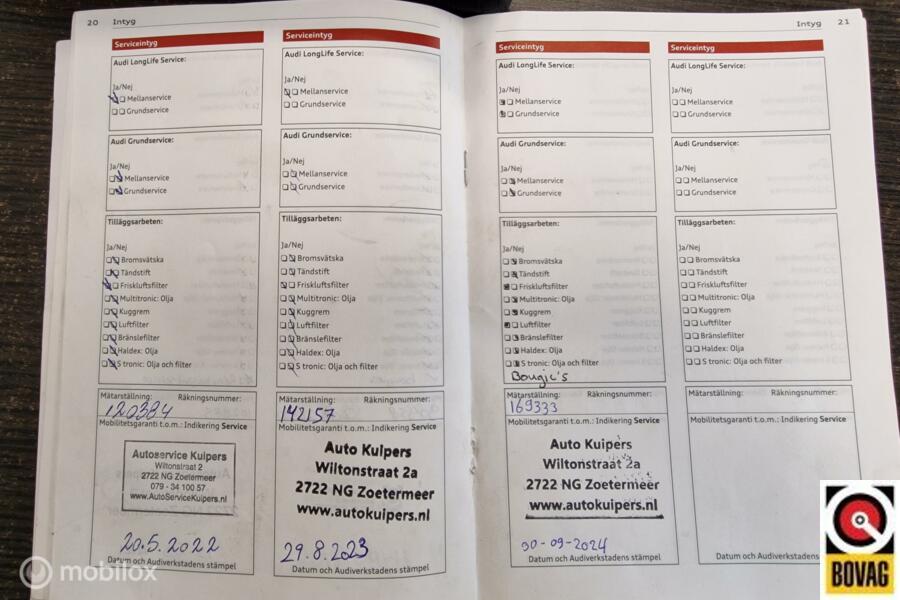 20 Intyg
Serviceintyg
Audi LongLife Service:
Ja/Nej
Mellanservice
Grundservice
Audi Grundservice:
Ja/Nej
Mellanservice
Grundservice
Tilläggsarbeten:
Ja/Nej
Bromsvätska
Tändstift
Friskluftsfilter
Multitronic: Olja
Kuggrem
Luftfilter
Bränslefilter
Haldex: Olja
S tronic: Olja och filter
Mätarställning: Räkningsnummer:
120384
Mobilitetsgaranti t.o.m.: Indikering Service
Autoservice Kuipers
Wiltonstraat 2
2722 NG Zoetermeer
079 - 34 100 57
www.AutoServiceKuipers.nl
20.5.2022
Datum och Audiverkstadens stämpel
Serviceintyg
Audi LongLife Service:
Ja/Nej
Mellanservice
Grundservice
Audi Grundservice:
Ja/Nej
Mellanservice
Grundservice
Tilläggsarbeten:
Ja/Nej
Bromsvätska
Tändstift
Friskluftsfilter
Multitronic: Olja
Kuggrem
Luftfilter
Bränslefilter
Haldex: Olja
S tronic: Olja och filter
Mätarställning: Räkningsnummer:
142157
Mobilitetsgaranti t.o.m.: Indikering Service
Auto Kuipers
Wiltonstraat 2a
2722 NG Zoetermeer
www.autokuipers.nl
29.8.2023
Datum och Audiverkstadens stämpel
Intyg 21
Serviceintyg
Audi LongLife Service:
Ja/Nej
Mellanservice
Grundservice
Audi Grundservice:
Ja/Nej
Mellanservice
Grundservice
Tilläggsarbeten:
Ja/Nej
Bromsvätska
Tändstift
Friskluftsfilter
Multitronic: Olja
Kuggrem
Luftfilter
Bränslefilter
Haldex: Olja
S tronic: Olja och filter
Bougie's
Mätarställning: Räkningsnummer:
169333
Mobilitetsgaranti t.o.m.: Indikering Service
Auto Kuipers
Wiltonstraat 2a
2722 NG Zoetermeer
www.autokuipers.nl
30-09-2024
Datum och Audiverkstadens stämpel
Serviceintyg
Audi LongLife Service:
Ja/Nej
Mellanservice
Grundservice
Audi Grundservice:
Ja/Nej
Mellanservice
Grundservice
Tilläggsarbeten:
Ja/Nej
Bromsvätska
Tändstift
Friskluftsfilter
Multitronic: Olja
Kuggrem
Luftfilter
Bränslefilter
Haldex: Olja
S tronic: Olja och filter
Mätarställning: Räkningsnummer:
Mobilitetsgaranti t.o.m.: Indikering Service
Datum och Audiverkstadens
mobilox
BOVAG